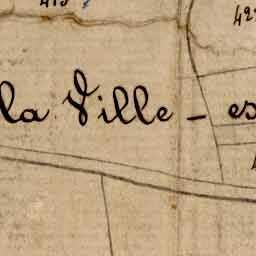 la Ville - es